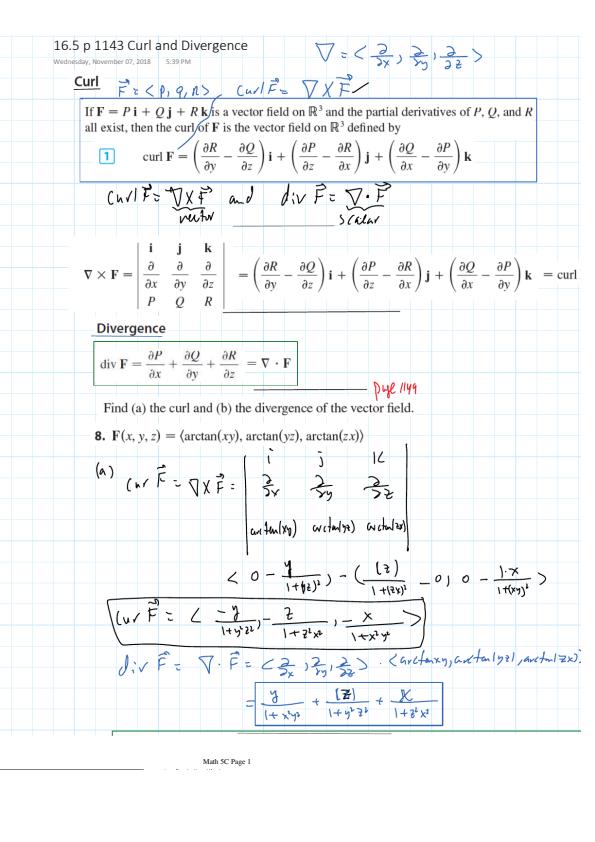 16.5 p 1143 Curl and Divergence
∇ = < ∂/∂x, ∂/∂y, ∂/∂z >
Wednesday, November 07, 2018 5:39 PM
Curl F⃗ = <P, Q, R> , Curl F⃗ = ∇ X F⃗
If F = P i + Q j + R k is a vector field on ℝ³ and the partial derivatives of P, Q, and R
all exist, then the curl of F is the vector field on ℝ³ defined by
1 curl F = (∂R/∂y − ∂Q/∂z) i + (∂P/∂z − ∂R/∂x) j + (∂Q/∂x − ∂P/∂y) k
Curl F⃗ = ∇ X F⃗ and div F⃗ = ∇ · F⃗
vector scalar
∇ × F = | i j k ; ∂/∂x ∂/∂y ∂/∂z ; P Q R | = (∂R/∂y − ∂Q/∂z) i + (∂P/∂z − ∂R/∂x) j + (∂Q/∂x − ∂P/∂y) k = curl
Divergence
div F = ∂P/∂x + ∂Q/∂y + ∂R/∂z = ∇ · F
page 1149
Find (a) the curl and (b) the divergence of the vector field.
8. F(x, y, z) = ⟨arctan(xy), arctan(yz), arctan(zx)⟩
(a) Cur F⃗ = ∇ X F⃗ = | i j k ; ∂/∂x ∂/∂y ∂/∂z ; arctan(xy) arctan(yz) arctan(zx) |
< 0 − y/(1+(yz)²), −( (z)/(1+(zx)²) − 0), 0 − 1·x/(1+(xy)²) >
Cur F⃗ = < −y/(1+y²z²), −z/(1+z²x²), −x/(1+x²y²) >
div F⃗ = ∇ · F⃗ = < ∂/∂x, ∂/∂y, ∂/∂z > · <arctan xy, arctan(yz), arctan(zx)>
= y/(1+x²y²) + (z)/(1+y²z²) + x/(1+z²x²)
Math 5C Page 1